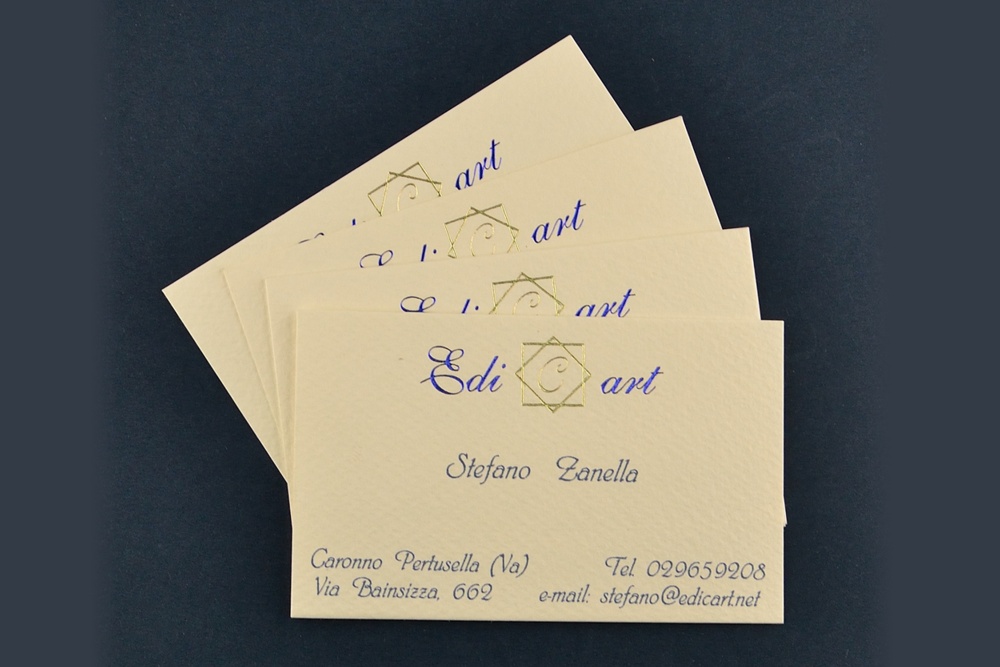 art
Edi C art
Edi C art
Edi C art
Stefano Zanella
Caronno Pertusella (Va)
Via Bainsizza, 662
Tel. 029659208
e-mail: stefano@edicart.net